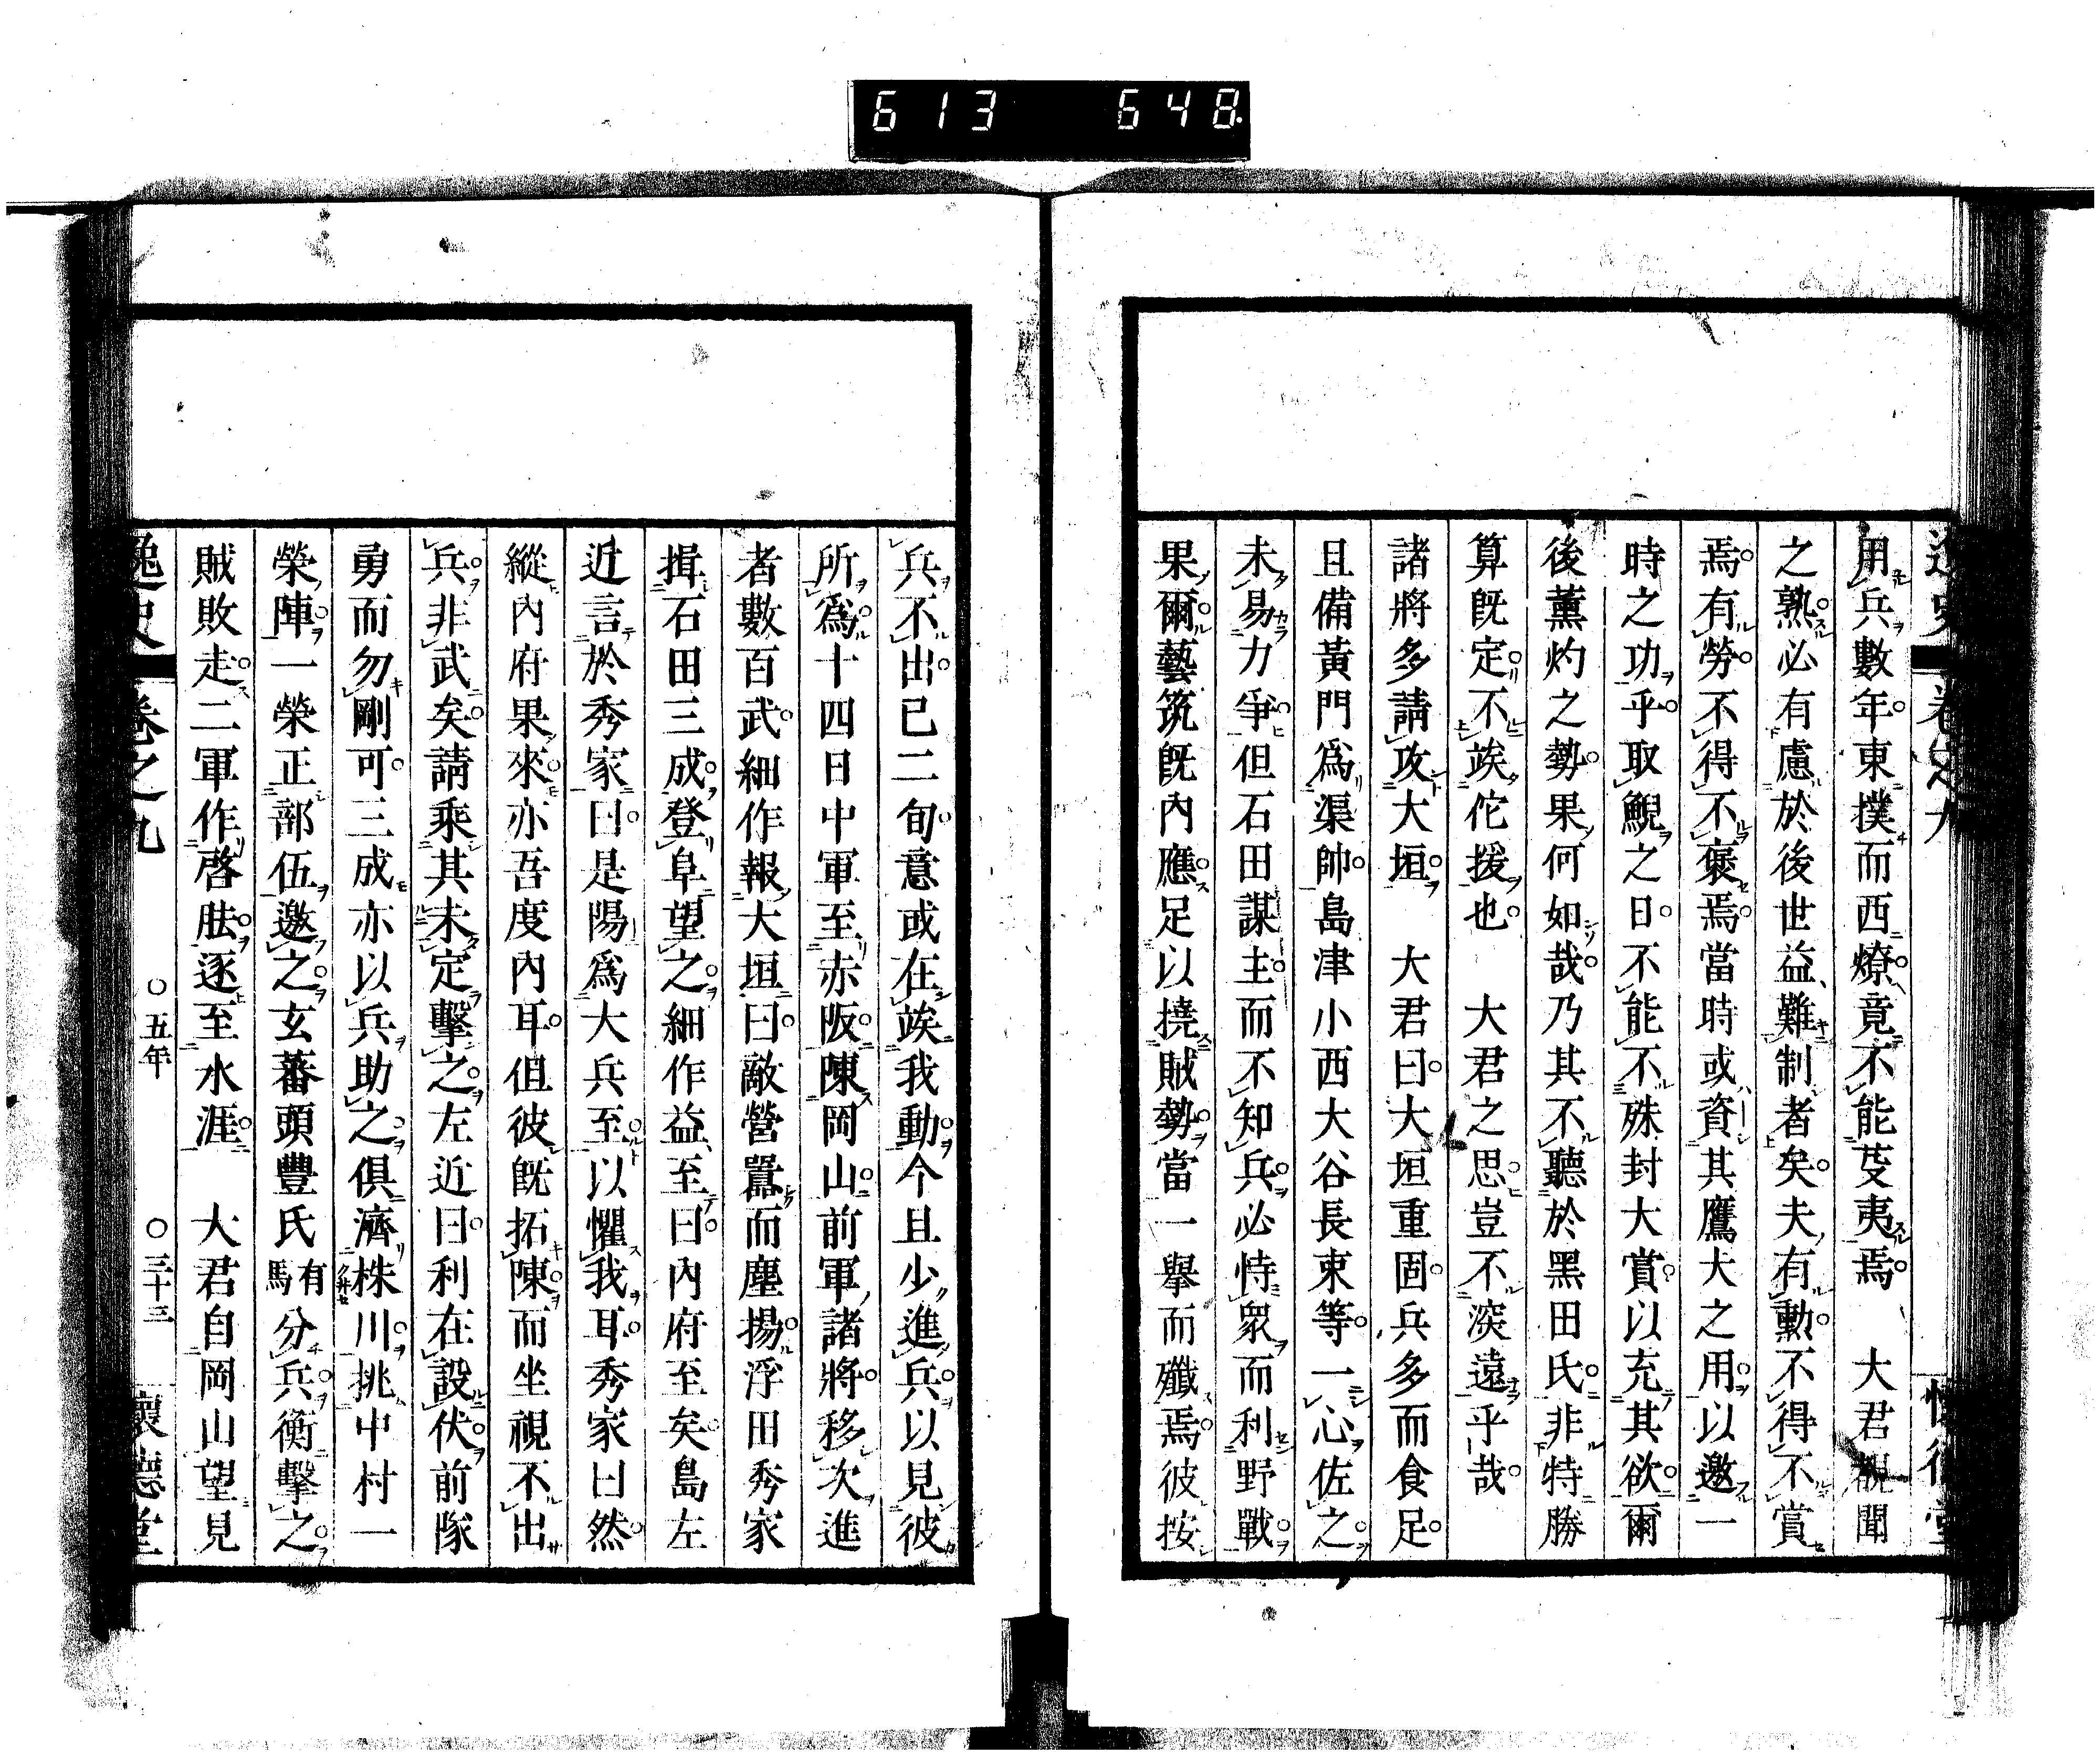 613 648
用兵數年東撲而西燎竟不能芟夷焉　大君親聞
之熟必有慮於後世益難制者矣夫有勳不得不賞
焉有勞不得不褒焉當時或資其鷹犬之用以邀一
時之功乎取鯢之日不能不殊封大賞以充其欲爾
後薫灼之勢果何如哉乃其不聽於黑田氏非特勝
算既定不竢佗援也　大君之思豈不深遠乎哉
諸將多請攻大垣　大君曰大垣重固兵多而食足
且備黃門爲渠帥島津小西大谷長束等一心佐之
未易力爭但石田謀主而不知兵必恃衆而利野戰
果爾藝筑既內應足以撓賊勢當一擧而殲焉彼按
兵不出已二旬意或在竢我動今且少進兵以見彼
所爲十四日中軍至赤阪陳岡山前軍諸將移次進
者數百武細作報大垣曰敵營囂而塵揚浮田秀家
揖石田三成登阜望之細作益至曰內府至矣島左
近言於秀家曰是陽爲大兵至以懼我耳秀家曰然
縱內府果來亦吾度內耳但彼既拓陳而坐視不出
兵非武矣請乘其未定擊之左近曰利在設伏前隊
勇而勿剛可三成亦以兵助之俱濟株川挑中村一
榮陣一榮正部伍邀之玄蕃頭豐氏有馬分兵衡擊之
賊敗走二軍作啓胠逐至水涯　大君自岡山望見
逸史　卷之九　〇五年　〇三十三　懷德堂